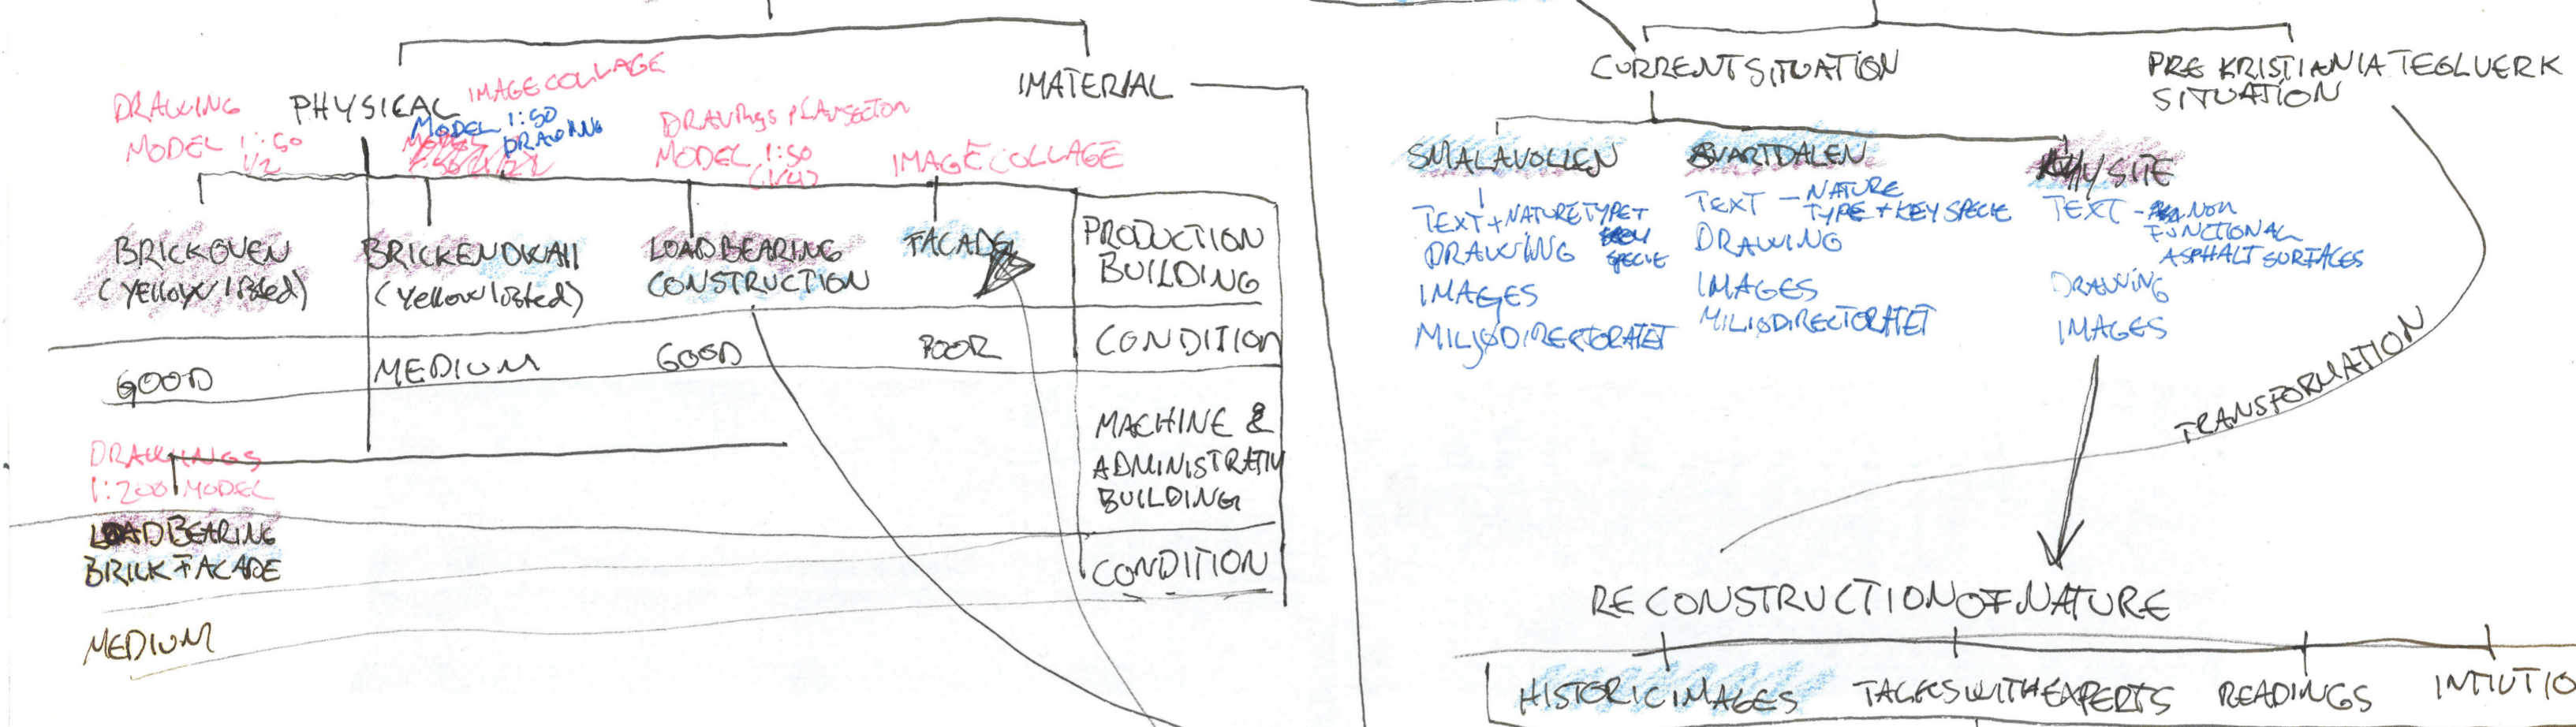 PHYSICAL
IMATERIAL
DRAWING
MODEL 1:50
1/2
IMAGE COLLAGE
MODEL 1:50
DRAWING
DRAWINGS PLAN SECTION
MODEL 1:50
(1/4)
IMAGE COLLAGE
BRICKOVEN
(YELLOW listed)
BRICKENDWAll
(Yellow listed)
LOADBEARING
CONSTRUCTION
FACADE
PRODUCTION
BUILDING
GOOD
MEDIUM
GOOD
POOR
CONDITION
MACHINE &
ADMINISTRATIV
BUILDING
DRAWINGS
1:200 MODEL
LOADBEARING
BRICK FACADE
CONDITION
MEDIUM
CURRENT SITUATION
PRE KRISTIANIA TEGLVERK
SITUATION
SMALAVOLLEN
TEXT + NATURETYPE +
SPECIE
DRAWING
IMAGES
MILJØDIREKTORATET
SVARTDALEN
TEXT - NATURE
TYPE + KEY SPECIE
DRAWING
IMAGES
MILJØDIRECTORATET
MY SITE
TEXT - NON
FUNCTIONAL
ASPHALT SURFACES
DRAWING
IMAGES
TRANSFORMATION
RECONSTRUCTION OF NATURE
HISTORIC IMAGES
TALKS WITH EXPERTS
READINGS
INTIUTIO